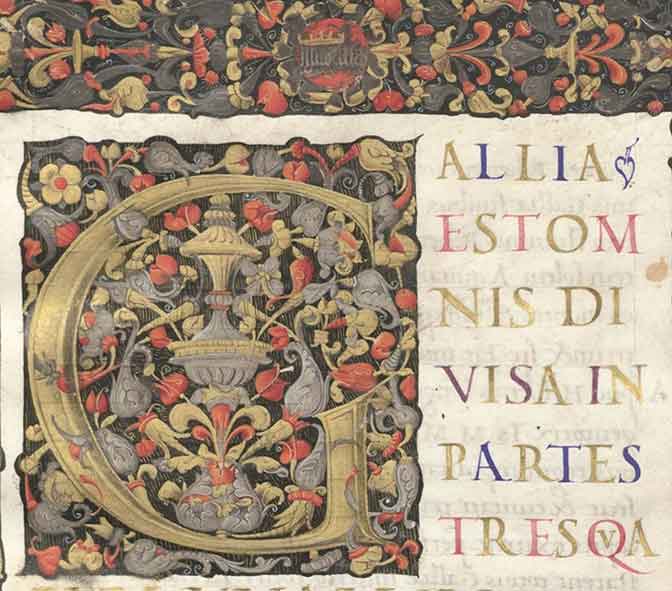 GALLIA
ESTOM
NIS DI
VISA IN
PARTES
TRESQVA